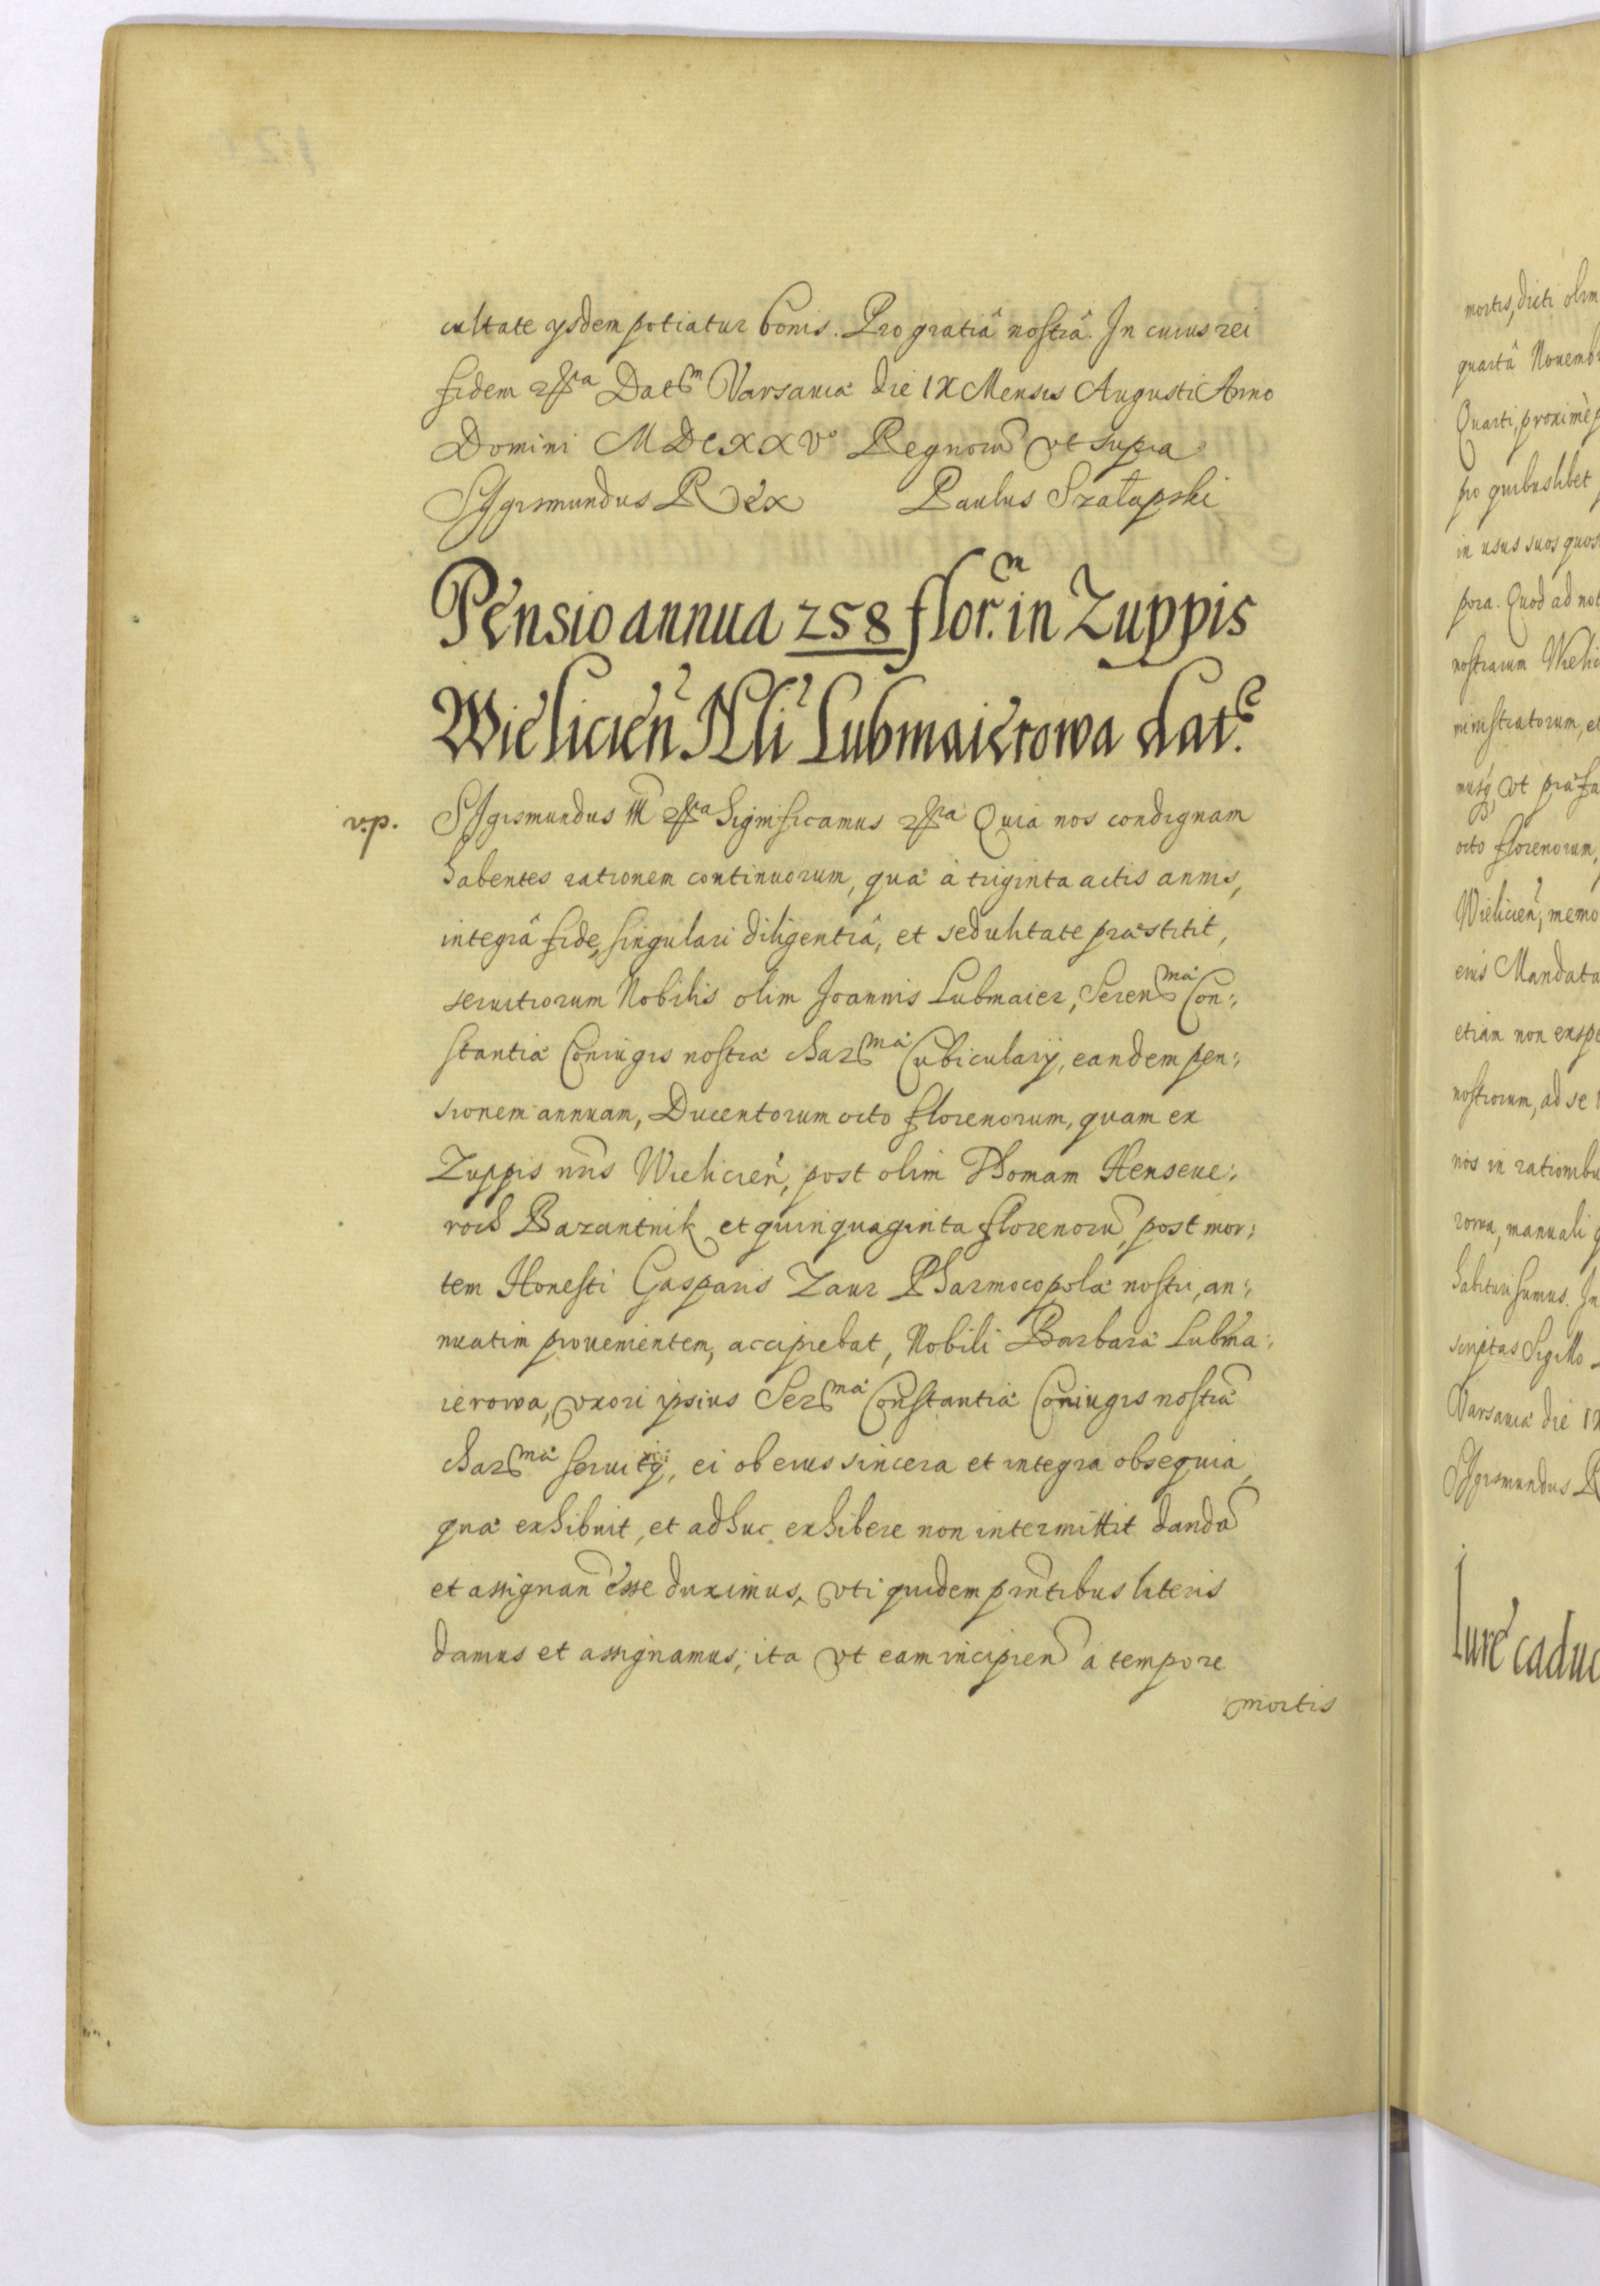 cultate ysdem potiatur bonis. Pro gratiâ nostrâ. In cuius rei
fidem &ra Datm Varsauiæ die IX Mensis Augusti Anno
Domini MDCXXVo Regnorũ vt supra
Sigismundus Rex Paulus Szałapski
Pensio annua 258 flor.m in Zuppis
Wielicien. Nli Lubmaierowa dat.
v.p.
Sigismundus III &ra Significamus &ra Quia nos condignam
habentes rationem continuorum, quæ à triginta actis annis,
integrâ fide, singulari diligentiâ, et sedulitate præstitit,
seruitiorum Nobilis olim Joannis Lubmaier, Serenmæ Con:
stantiæ Coniugis nostræ Charmæ Cubicularij, eandem pen:
sionem annuam, Ducentorum octo florenorum, quam ex
Zuppis nris Wielicien, post olim Thomam Henseue:
roch Bazantnik et quinquaginta florenorũ, post mor:
tem Honesti Gasparis Zaur Pharmocopolæ nostri, an:
nuatim prouenientem, accipiebat, Nobili Barbaræ Lubma:
ierowa, vxori ipsius Sermæ Constantiæ Coniugis nostræ
charmæ seruitrici, ei ob eius sincera et integra obsequia,
quæ exhibuit, et adhuc exhibere non intermittit dandã
et assignan esse duximus, vti quidem prntibus literis
damus et assignamus; ita vt eam incipien à tempore
mortis
mortis, dicti olim
quartâ Nouemb
Quarti, proximè p
pro quibuslibet
in usus suos quos
pora. Quod ad not
nostrarum Wielic
ministratorum, et
nusq, vt præfa
octo florenorum,
Wielicien, memo
eius Mandata
etiam non exspe
nostrorum, ad se
nos in rationibu
rowa, manuali q
habituri sumus. In
scriptas Sigillo
Varsauiæ die IX
Sigismundus R
Iure caduc